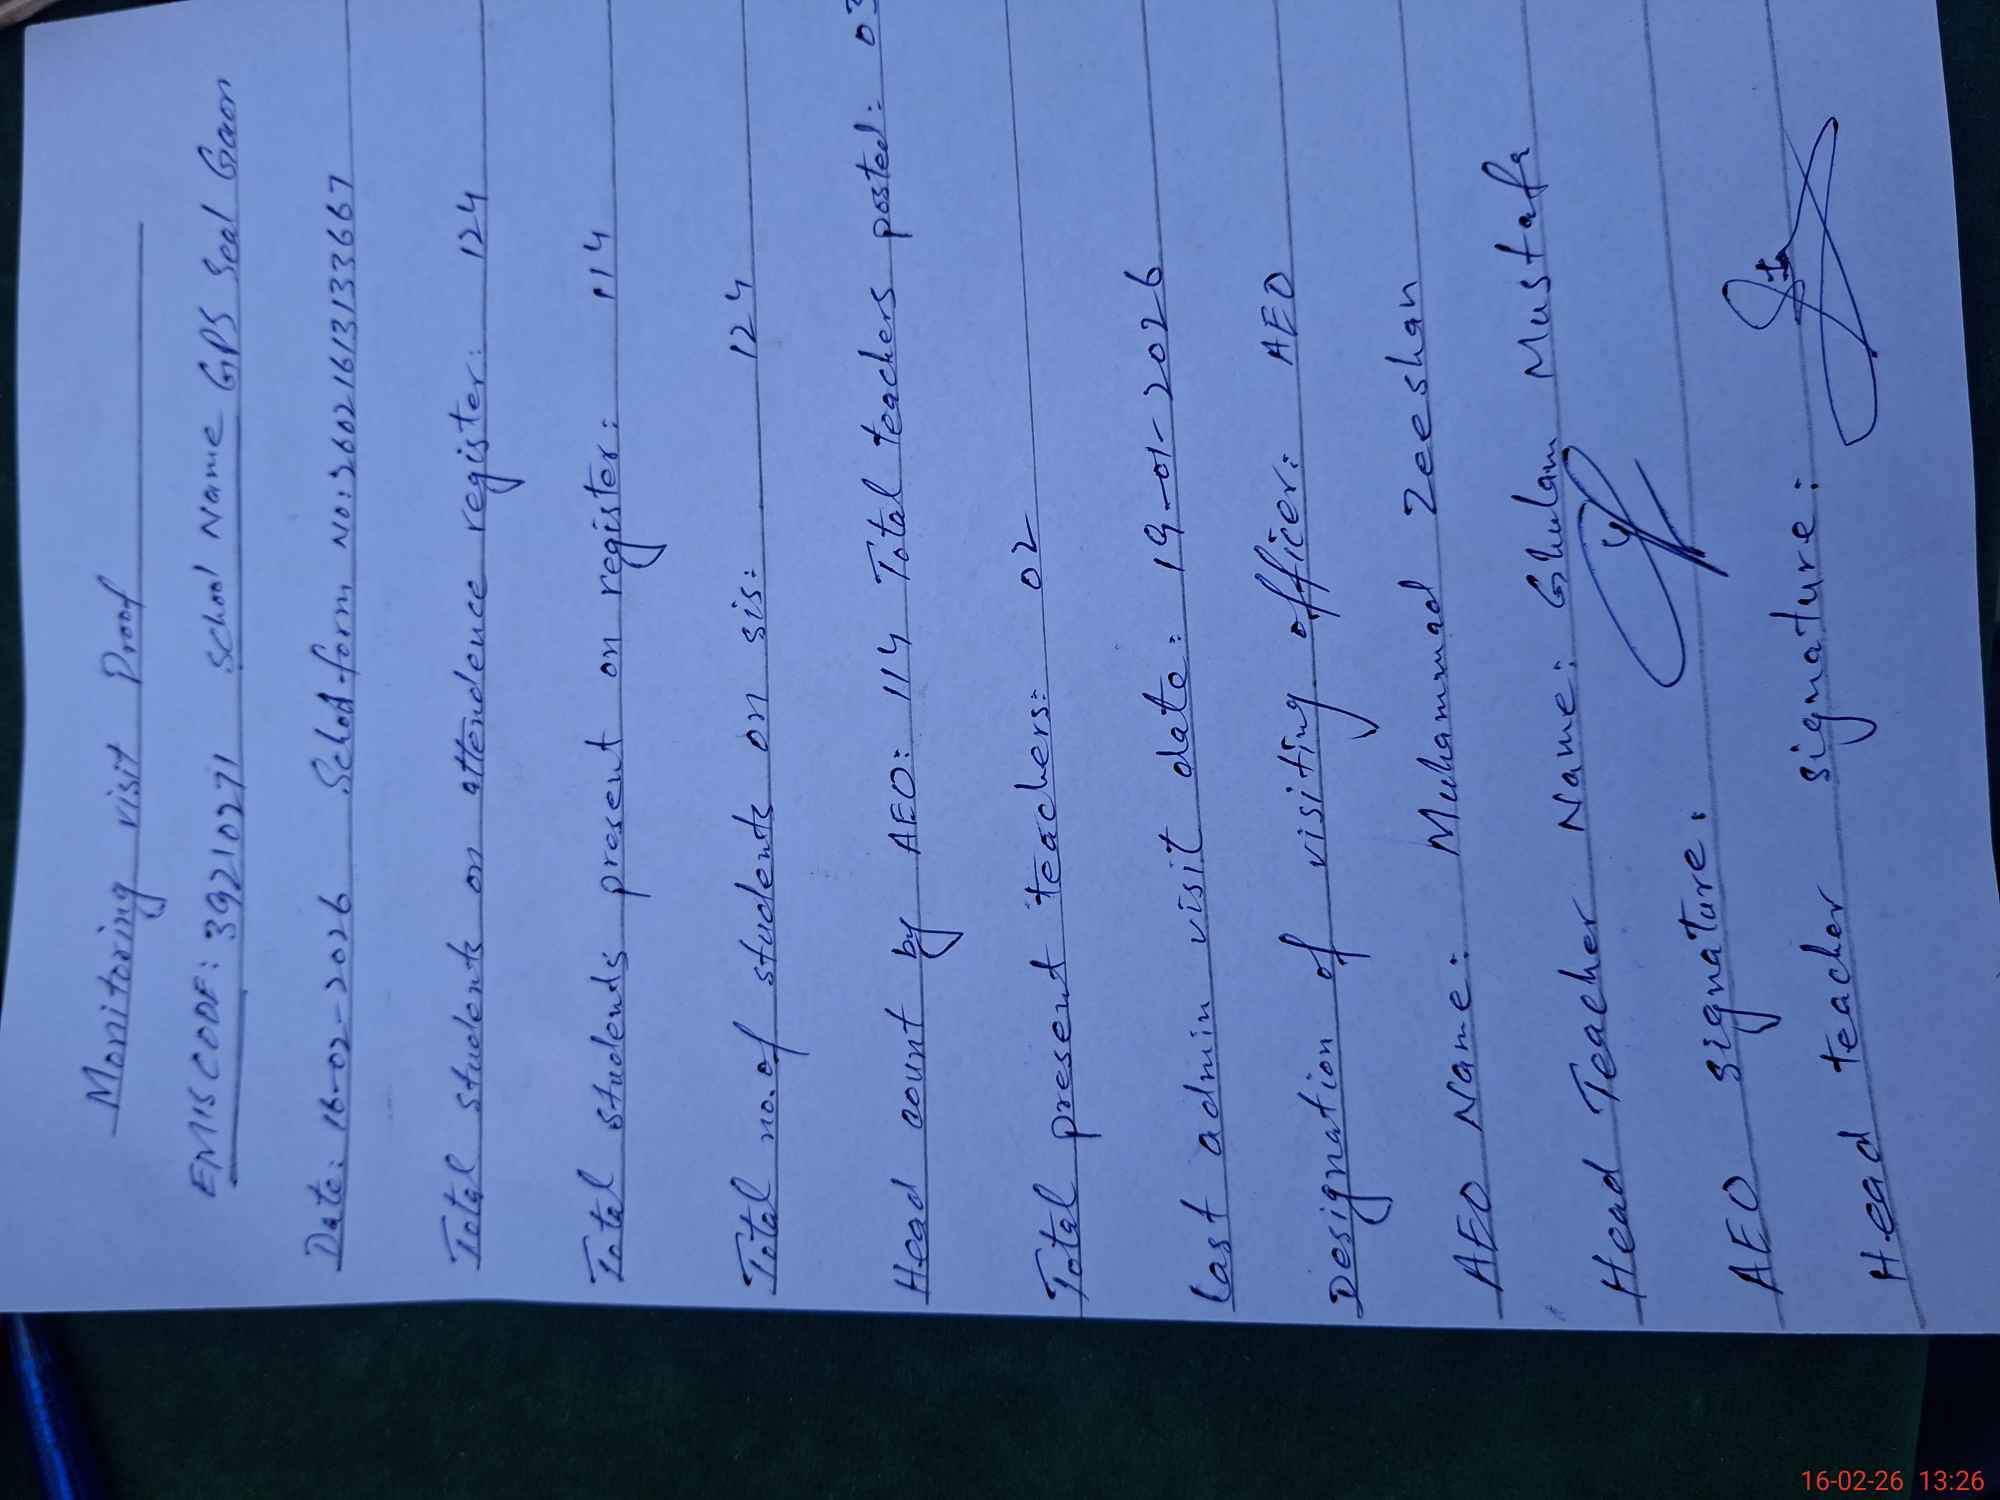 Monitoring visit Proof
EMISCODE: 39210271 School Name GPS Seal Gaon
Date: 16-02-2026 School form No: 260216131333667
Total students on attendence register: 124
Total students present on register: 114
Total no. of students on sis: 124
Head count by AEO: 114 Total teachers posted: 03
Total present teachers: 02
Last admin visit date: 19-01-2026
Designation of visiting officer: AEO
AEO Name: Muhammad Zeeshan
Head Teacher Name: Ghulam Mustafa
AEO signature:
Head teacher signature:
16-02-26 13:26